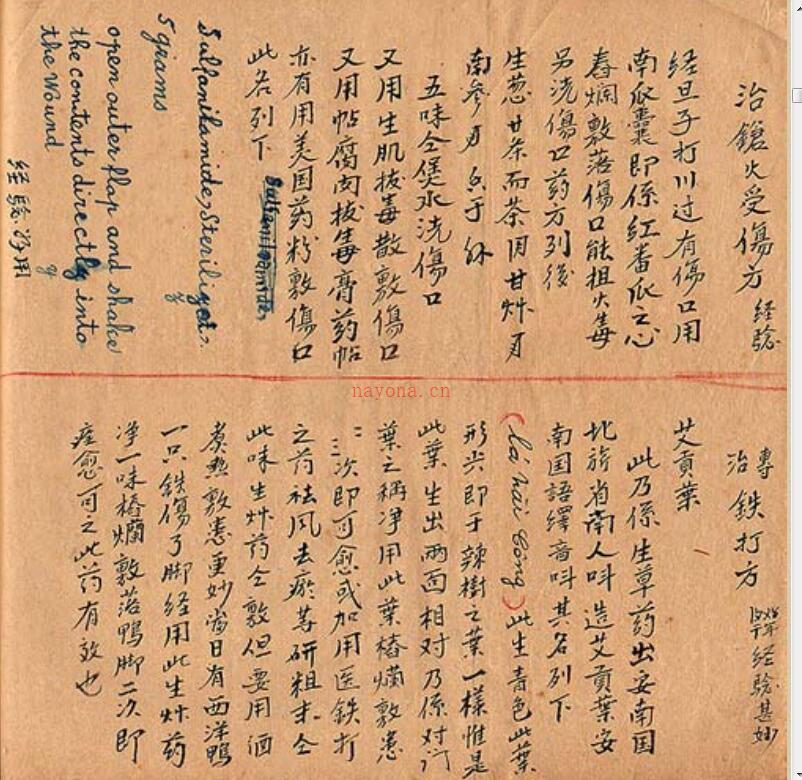 治鎗火受傷方 经驗
经旦子打川过有傷口用
南瓜囊即係紅番瓜之心
舂爛敷落傷口能抯火毒
另洗傷口药方列後
生葱 甘茶而茶 甘艸
南参
五味仝煲水洗傷口
又用生肌拔毒散敷傷口
又用帖腐肉拔毒膏药帖
亦有用美国药粉敷傷口
此名列下
Sulfanilamide, Sterilized.
5 grams
open outer flap and shake
the contents directly into
the Wound
经驗好用
專治鉄打方 经驗甚妙
艾貢葉
此乃係生草药出安南国
北旂省南人呌造艾貢葉安
南国語繹音呌其名列下
(lá hải Công) 此生青色此葉
形尖即于辣樹之葉一樣惟是
此葉生出两面相对乃係对门
葉之稱净用此葉樁爛敷患
二三次即可愈或加用医鉄打
之药祛风去瘀等研粗末仝
此味生艸药仝敷但要用酒
煮熱敷患更妙當日有西洋鴨
一只鉄傷了脚经用此生艸药
净一味樁爛敷落鴨脚二次即
痊愈可之此药有效也
nayona.cn